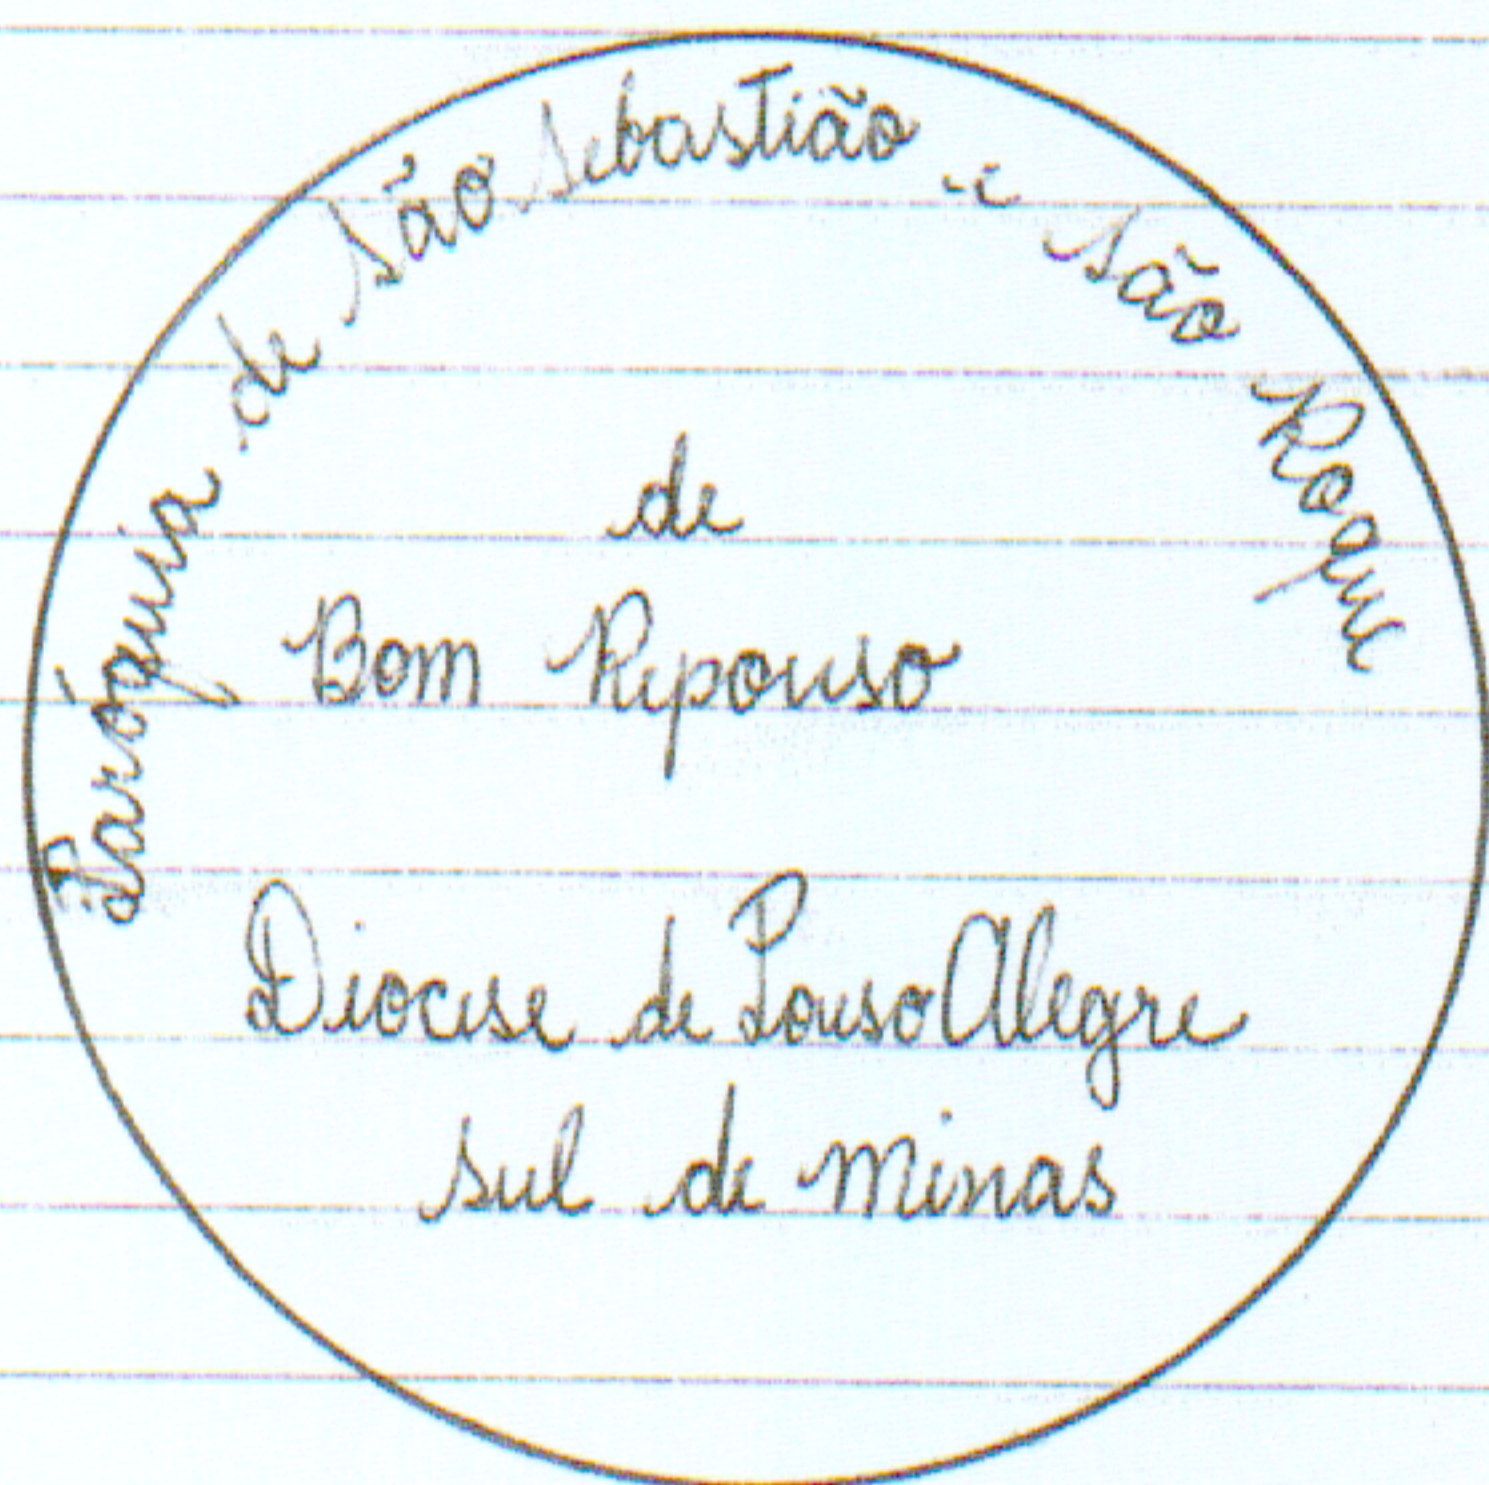 Paróquia de São Sebastião e São Roque
de
Bom Repouso
Diocese de Pouso Alegre
sul de minas